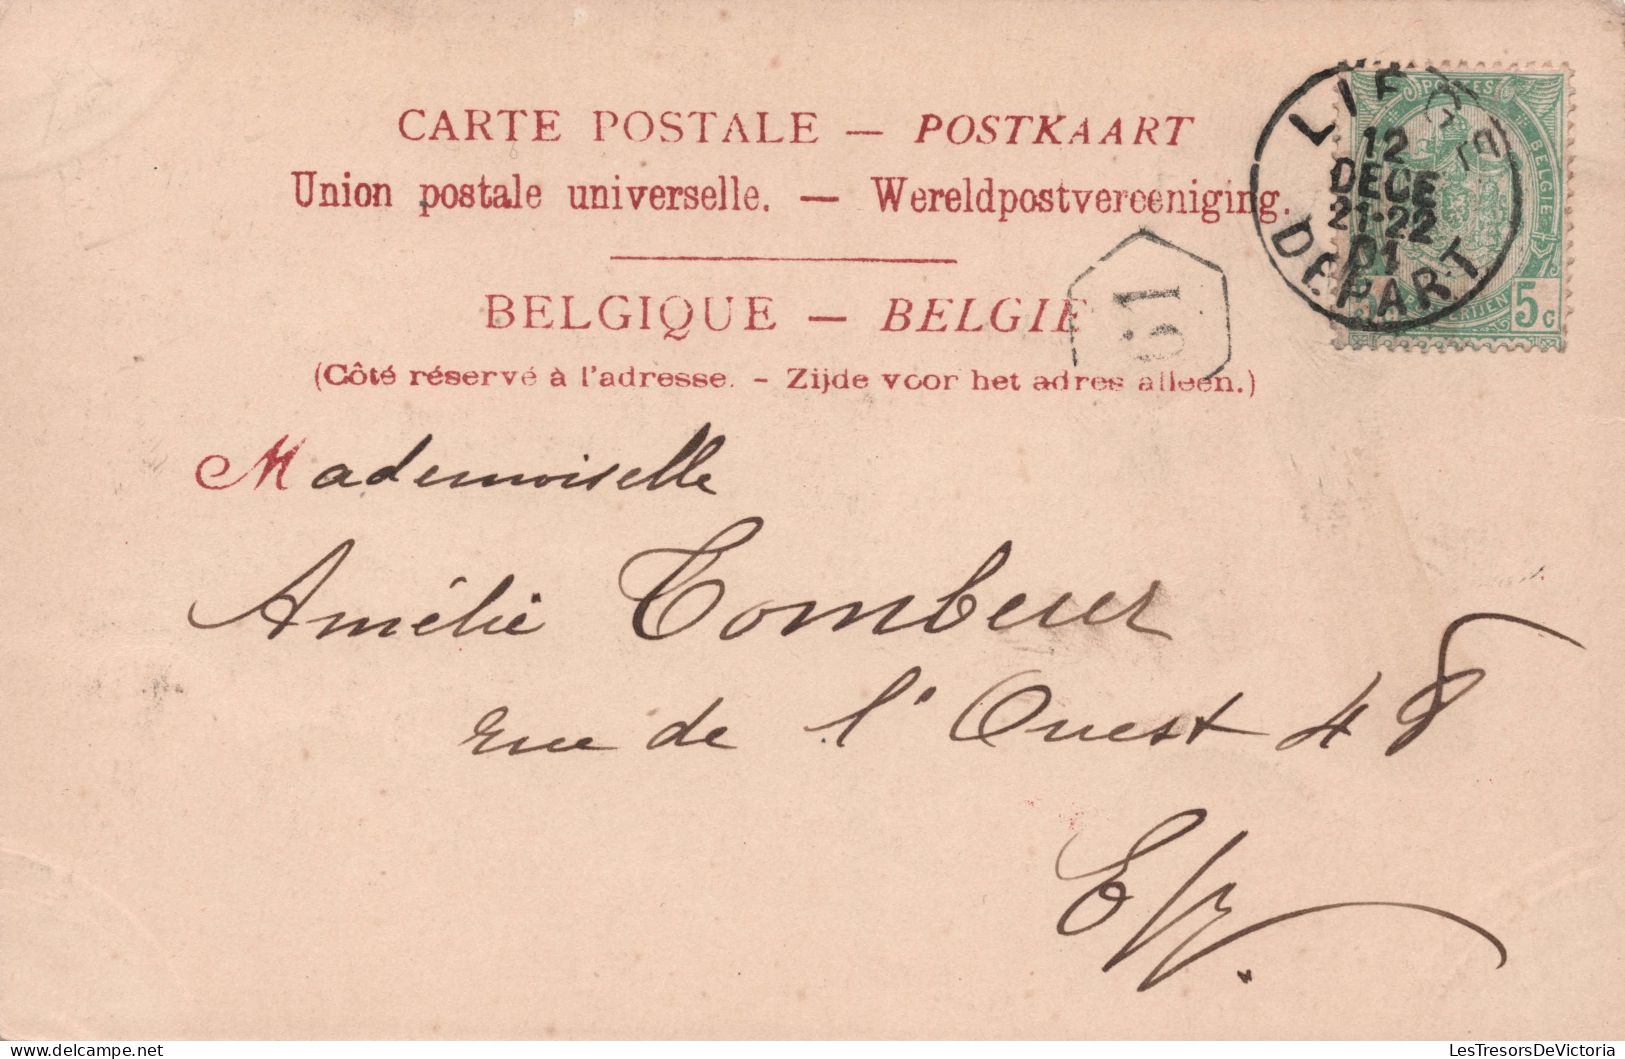 CARTE POSTALE — POSTKAART
Union postale universelle. — Wereldpostvereeniging.
BELGIQUE — BELGIE
(Côté réservé à l'adresse. - Zijde voor het adres alleen.)
LIEGE
12
DECE
21-22
01
DEPART
POSTES
BELGIQUE
5c
61
Mademoiselle
Amélie Tombeur
rue de l'Ouest 48
E/V.
LesTresorsDeVictoria